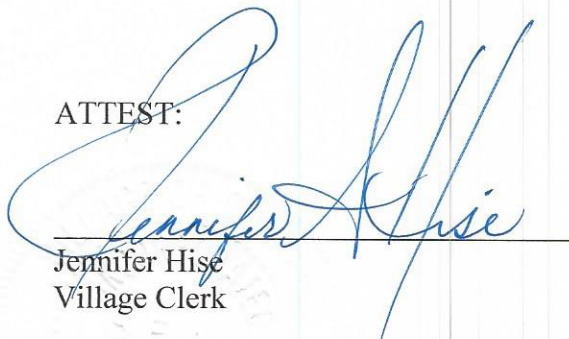 ATTEST:
Jennifer A Hise
Jennifer Hise
Village Clerk